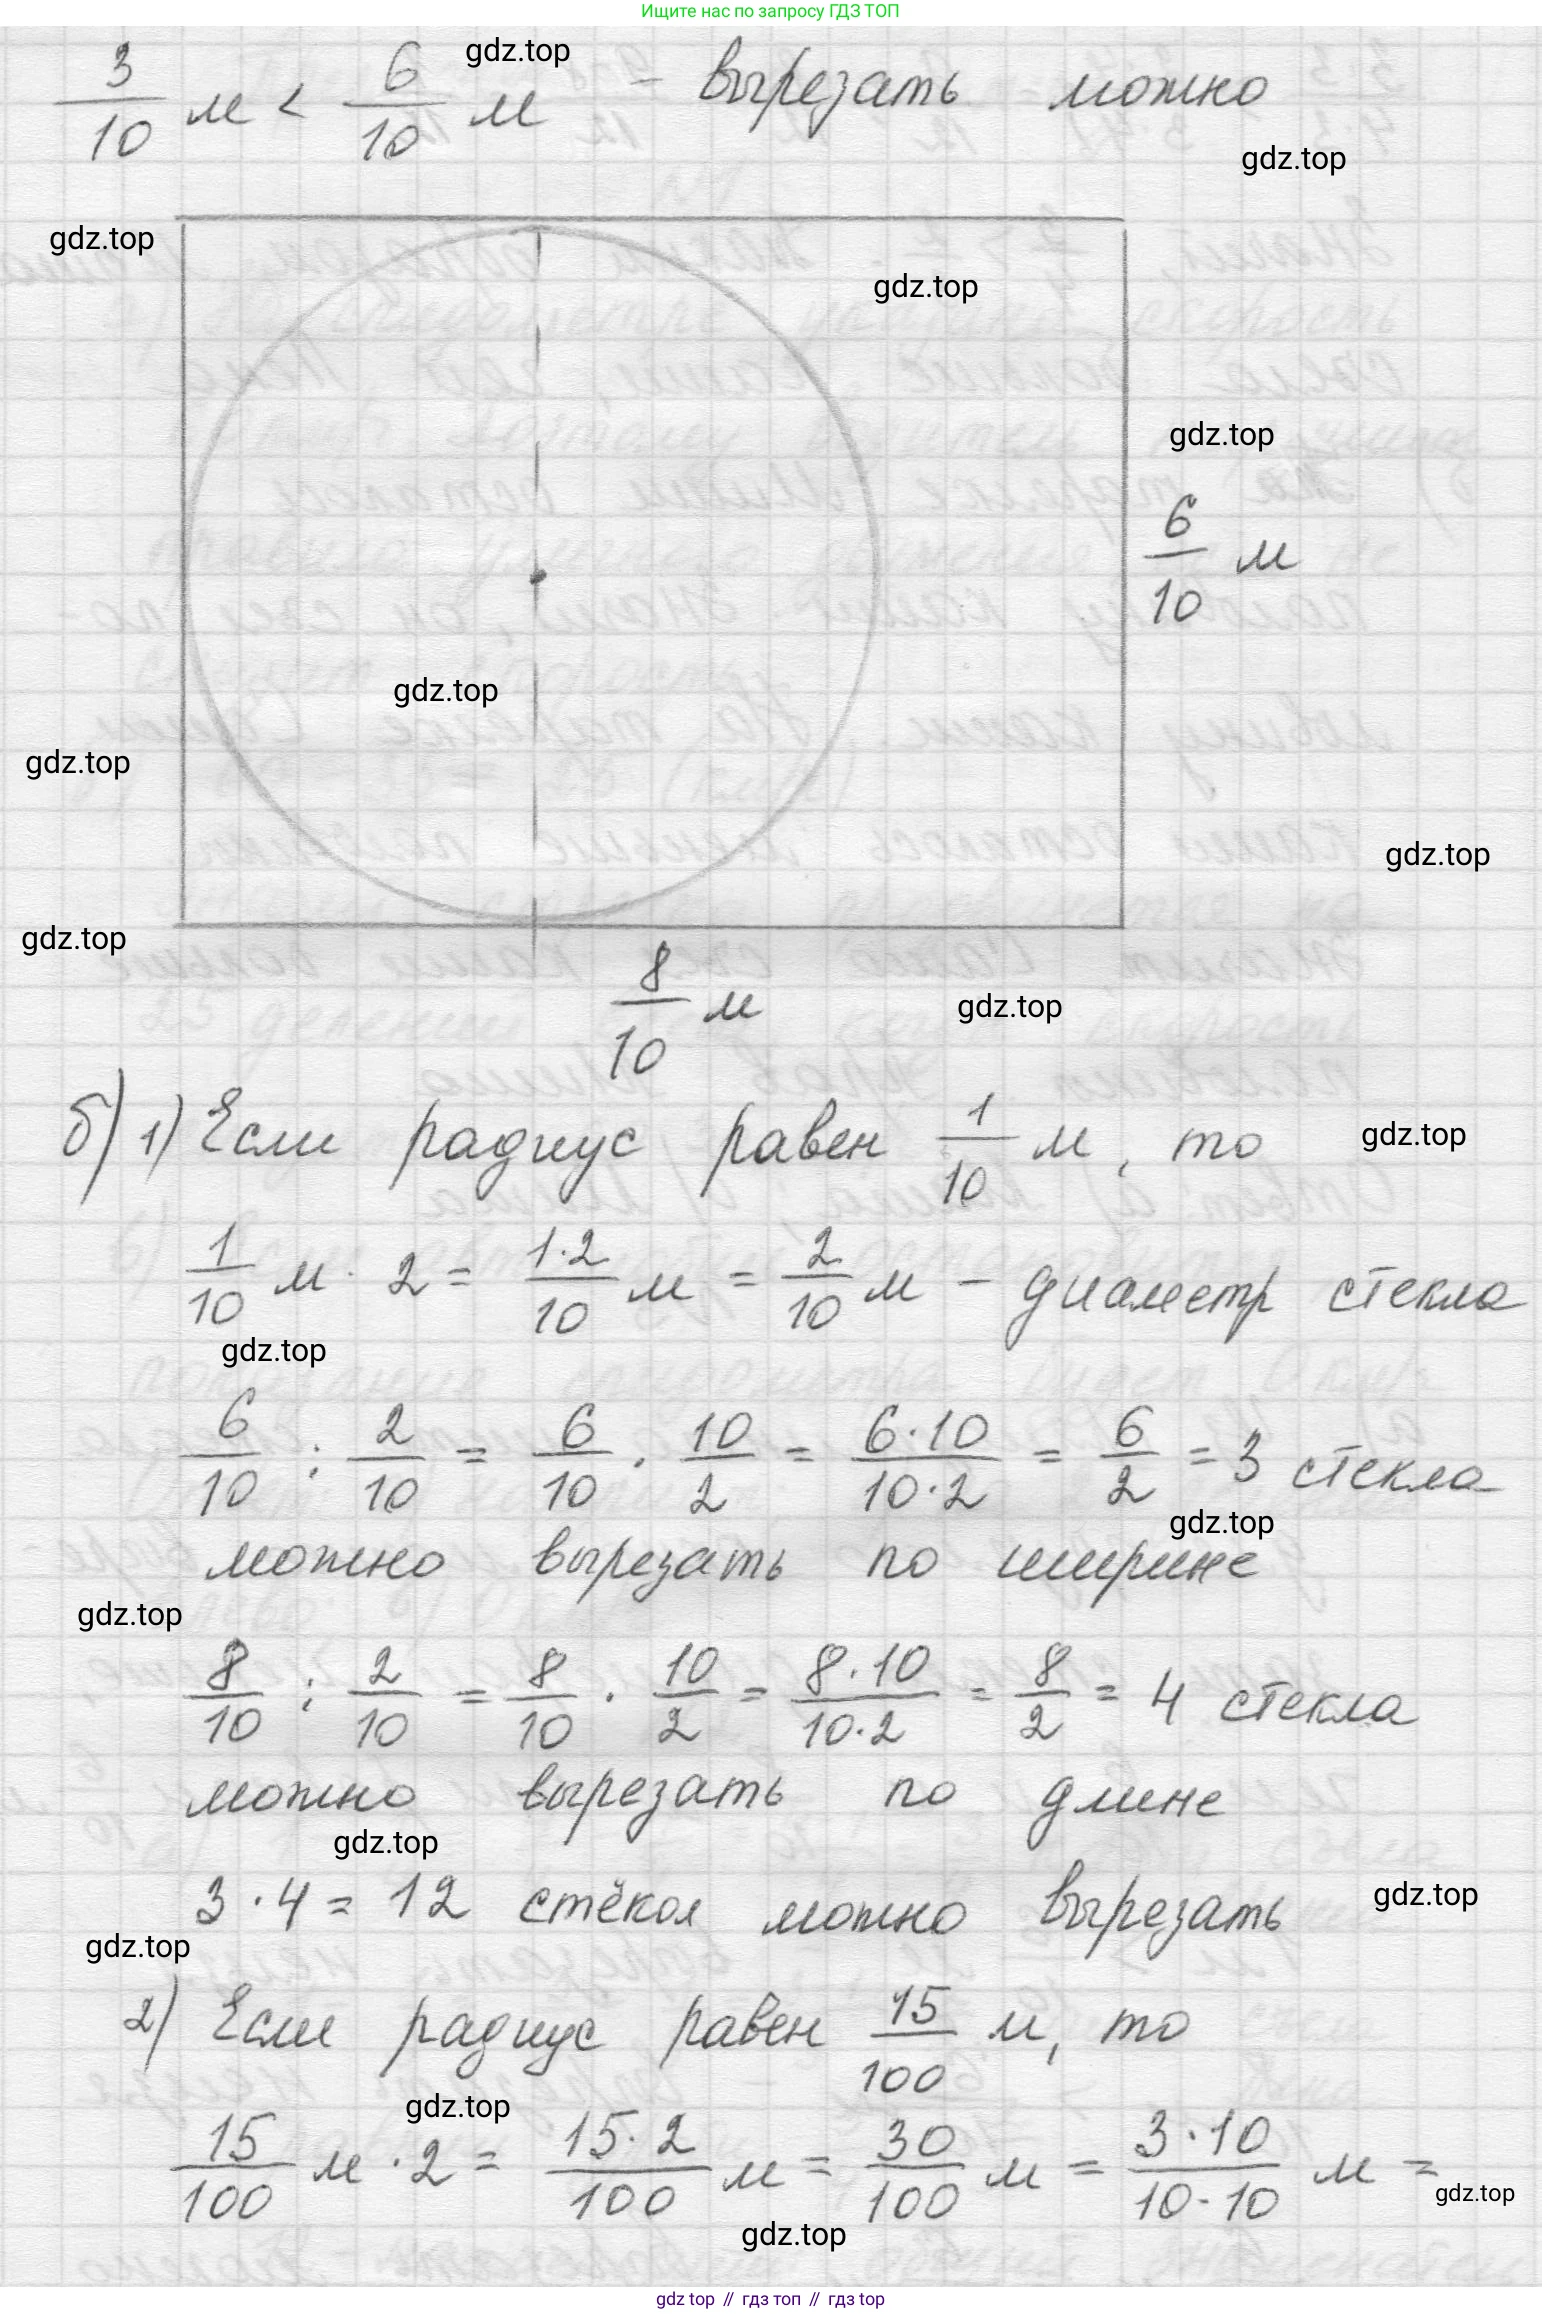 Ищите нас по запросу ГДЗ ТОП
gdz.top
3/10 м < 6/10 м – вырезать можно
gdz.top
gdz.top
gdz.top
gdz.top
6/10 м
gdz.top
gdz.top
gdz.top
gdz.top
8/10 м
gdz.top
б) 1) Если радиус равен 1/10 м, то
gdz.top
1/10 м · 2 = 1·2/10 м = 2/10 м – диаметр стекла
gdz.top
6/10 : 2/10 = 6/10 · 10/2 = 6·10/10·2 = 6/2 = 3 стекла
gdz.top
можно вырезать по ширине
gdz.top
8/10 : 2/10 = 8/10 · 10/2 = 8·10/10·2 = 8/2 = 4 стекла
можно вырезать по длине
gdz.top
3 · 4 = 12 стёкол можно вырезать
gdz.top
gdz.top
2) Если радиус равен 15/100 м, то
gdz.top
15/100 м · 2 = 15·2/100 м = 30/100 м = 3·10/10·10 м =
gdz.top
gdz.top
gdz top // гдз топ // гдз top